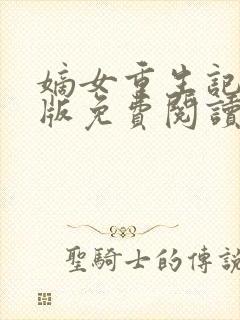 嫡女重生記
版免費閱讀
聖騎士的傳說